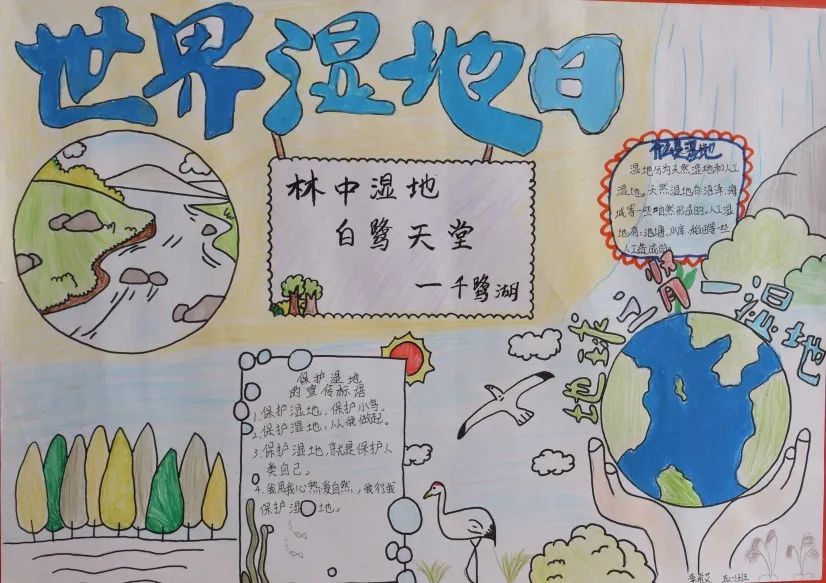 世界湿地日
林中湿地
白鹭天堂
—千鹭湖
什么是湿地
湿地分为天然湿地和人工
湿地。天然湿地有:沼泽,海
域等一些自然形成的。人工湿
地有:池塘、水库、稻田等一些
人工造成的。
地球之肾—湿地
保护湿地
的宣传标语
1.保护湿地,保护小鸟。
2.保护湿地,从我做起。
3.保护湿地,就是保护人
类自己。
4.我用我心热爱自然,我行我
保护湿地。